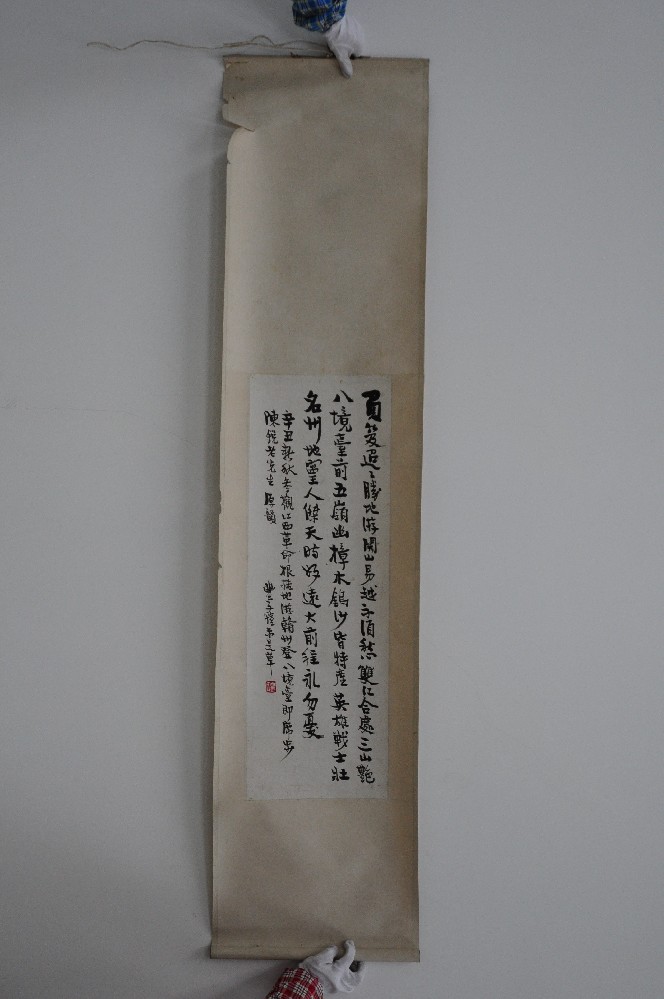 負笈迢迢勝地游關山易越不須愁雙江合處三山艷
八境臺前五嶺幽樟木鎢沙皆特產英雄戰士壯
名州地靈人傑天時好遠大前程永勿憂
辛丑新秋參觀江西革命根據地游贛州登八境臺即席步
陳銘老先生原韻 豐子愷未是草